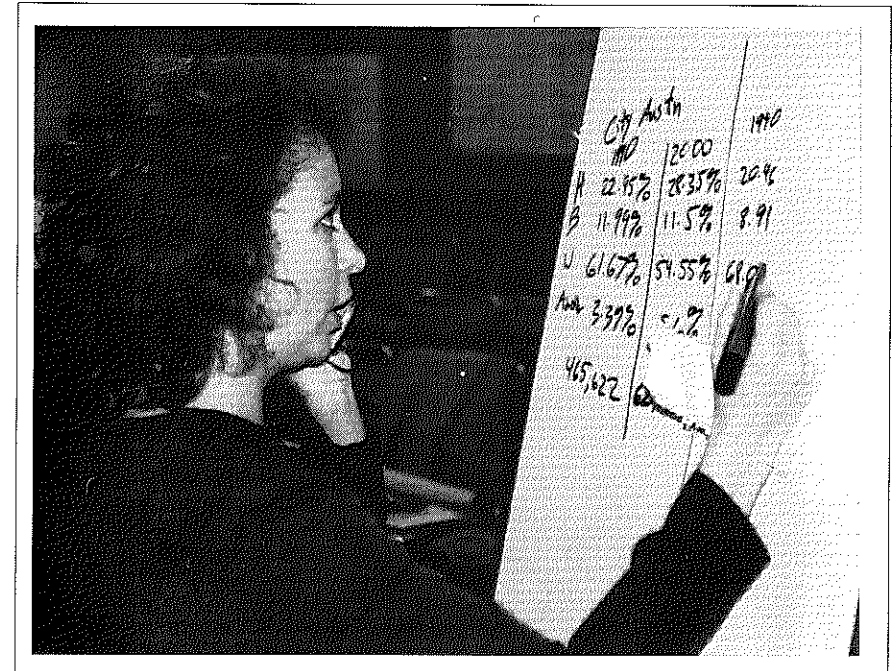 City Austn
1990 2000 1990
H 22.95% 28.35% 20.96
B 11.99% 11.5% 8.91
W 61.67% 54.55% 68.0
3.39% %
465,622